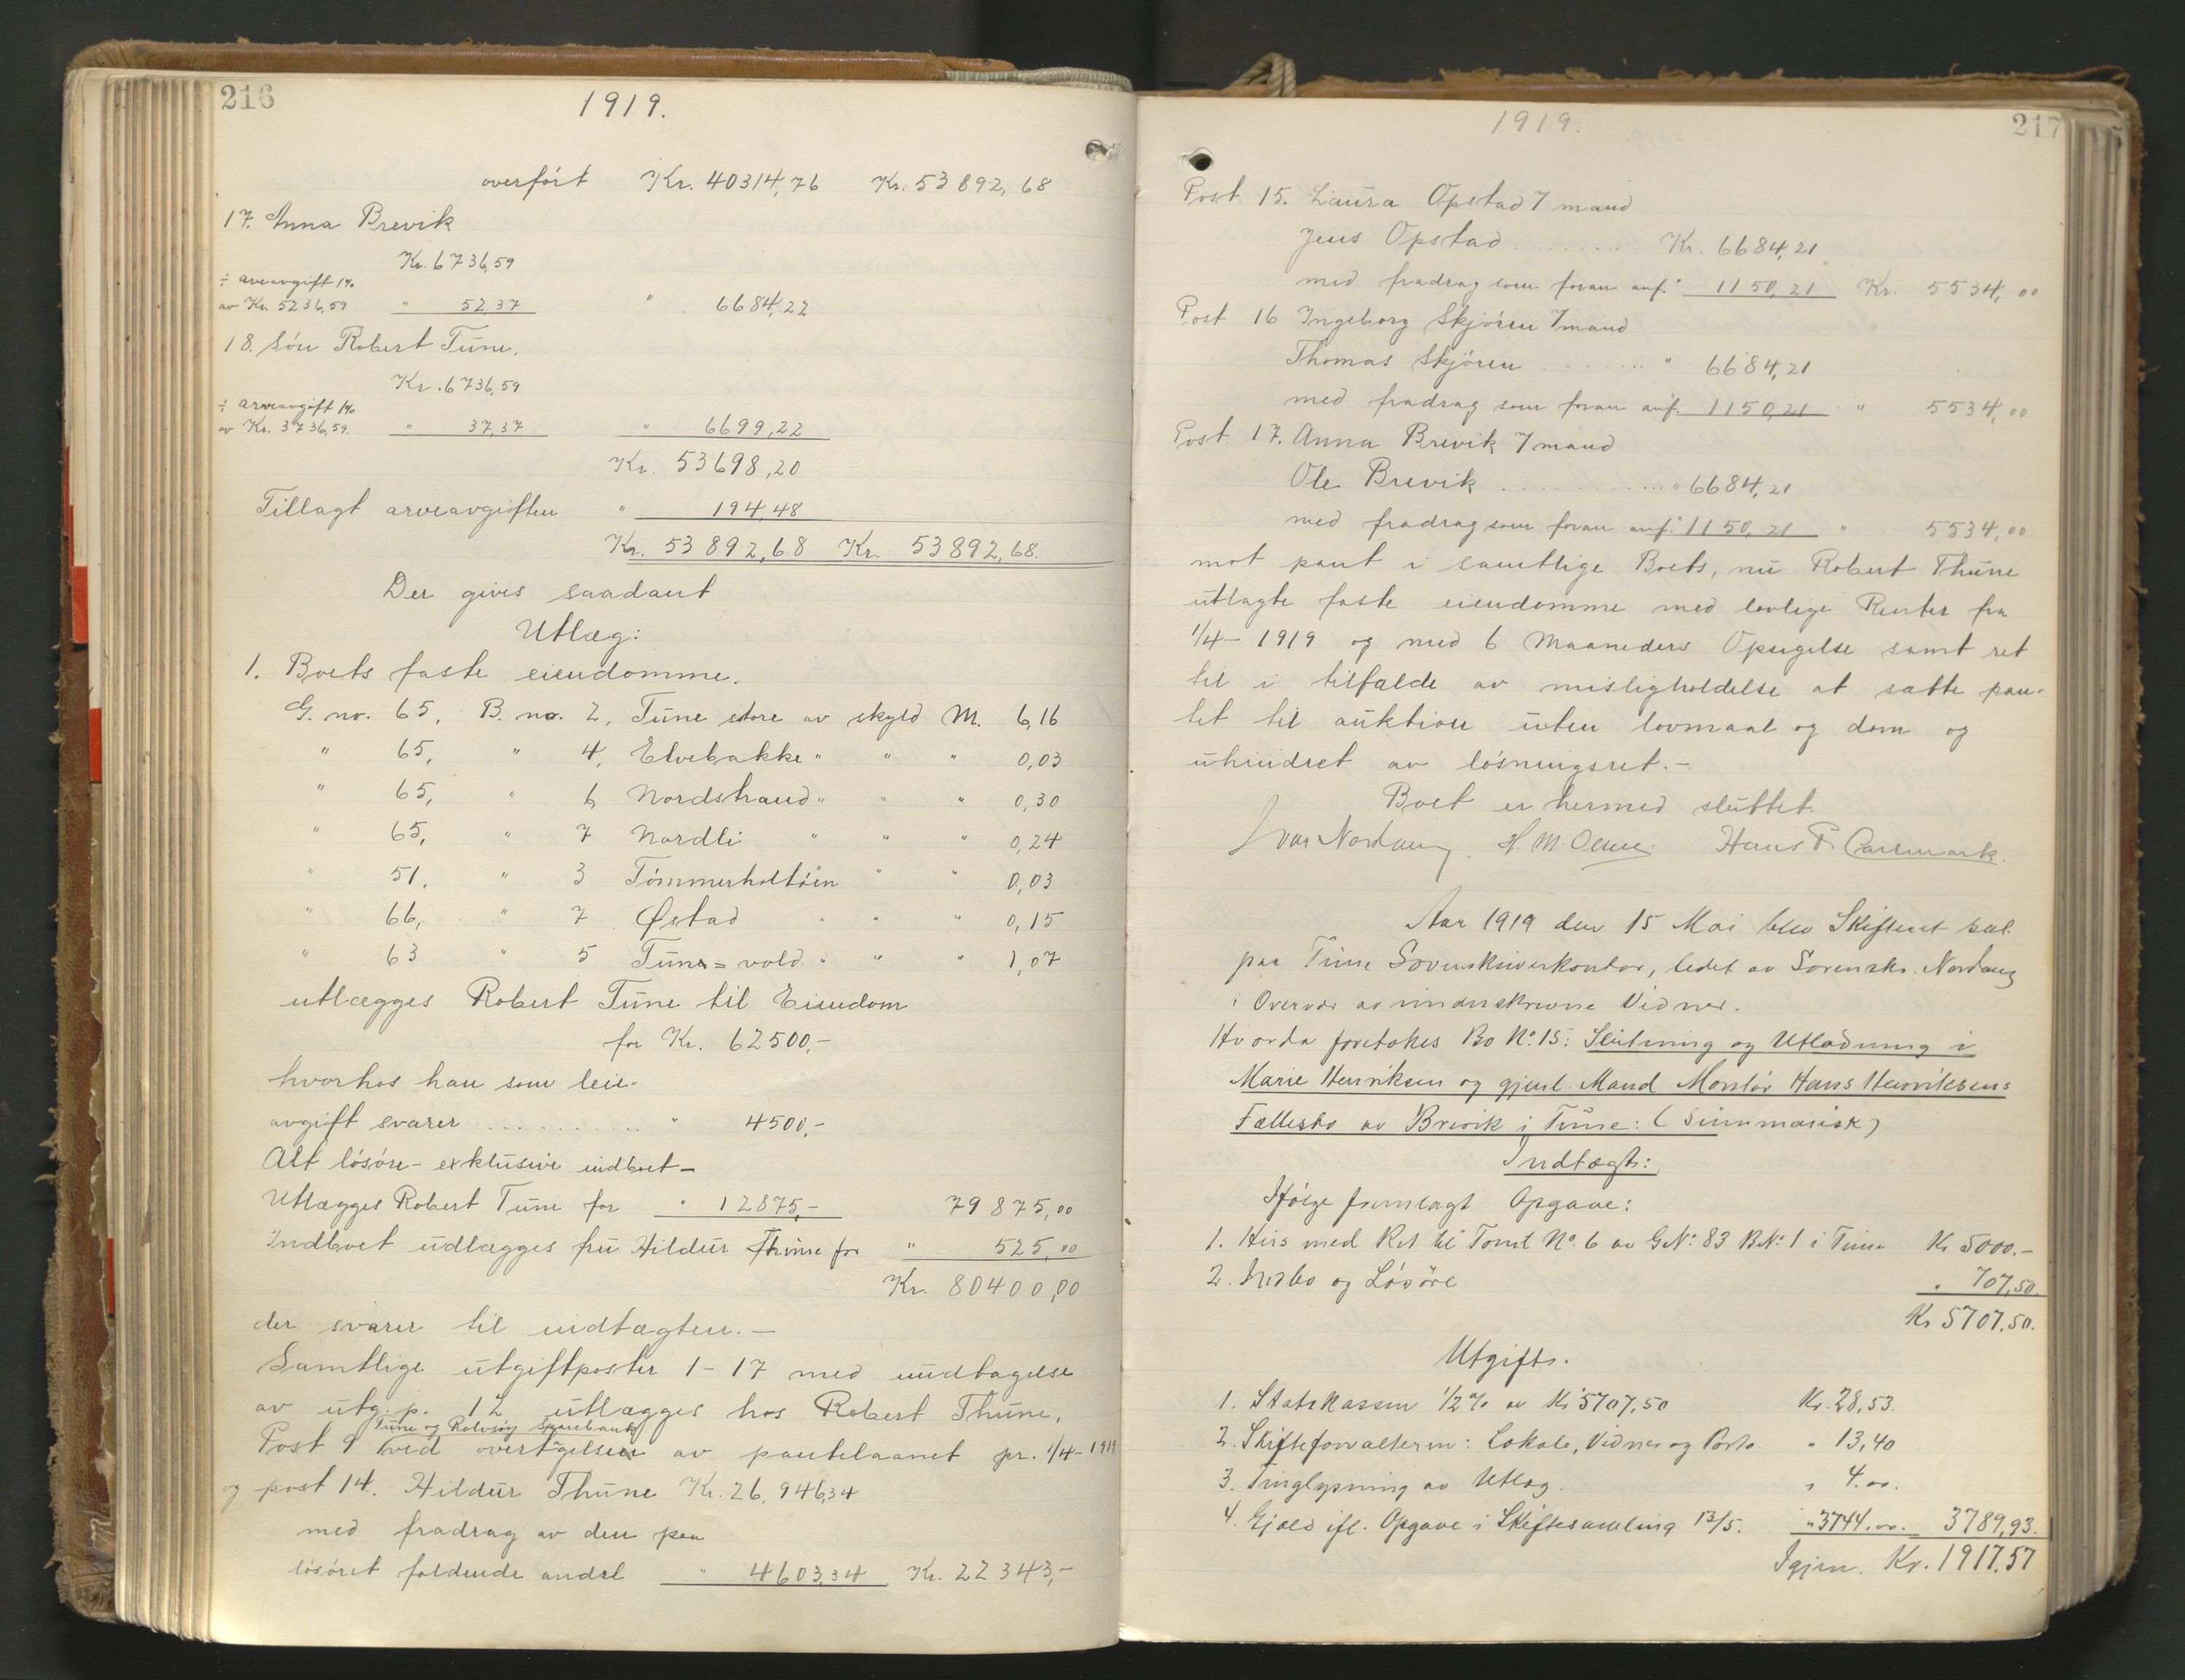 216
1919.
overført Kr. 40314,76 Kr. 53892,68
17. Anna Brevik
Kr. 6736,59
÷ arveavgift 1%
av Kr. 5236,59 " 52 37 " 6684,22
18. Søn Robert Tune.
Kr. 6736,59
÷ arveavgift 1%
av Kr. 3736,59. " 37,37 " 6699,22
Kr. 53698,20
Tillagt arveavgiften " 194,48
Kr. 53892,68 Kr. 53892,68.
Der gives saadant
Utlæg:
1. Boets faste eiendomme.
G. no. 65, B. no. 2, Tune store av skyld M. 6,16
" 65, " 4, Elvebakke " " " 0,03
" 65, " 6 Nordstrand " " " 0,30
" 65, " 7 Nordli " " " 0,24
" 51, " 3 Tømmerholtøen " " 0,03
" 66, " 7 Østad " " " 0,15
" 63 " 5 Tune=vold " " " 1,07
utlægges Robert Tune til Eiendom
for Kr. 62500,-
hvorhos han som leie-
avgift svarer .......... " 4500,-
Alt løsøre - exklusive indboet -
Utlægges Robert Tune for " 12875,- 79875,00
Indboet udlægges fru Hildur Thune for " 525,00
Kr. 80400,00
der svarer til indtægten. -
Samtlige utgiftposter 1-17 med undtagelse
av utg. p. 12 utlægges hos Robert Thune,
Tune og Rolvsøy Sparebank
Post 9 ved overtagelsen av pantelaanet pr. 1/4-1919
og post 14. Hildur Thune Kr. 26,946,34
med fradrag av den paa
løsøret faldende andel " 4603,34 Kr. 22343,-
1919.
217
Post 15. Laura Opstad 7 mand
Jens Opstad ....... Kr. 6684,21
med fradrag som foran anf. " 1150,21 Kr. 5534,00
Post 16 Ingeborg Skjøren 7 mand
Thomas Skjøren ....... " 6684,21
med fradrag som foran anf. 1150,21 " 5534,00
Post 17. Anna Brevik 7 mand
Ole Brevik ............ " 6684,21
med fradrag som foran anf. " 1150,21 " 5534,00
mot pant i samtlige Boets, nu Robert Thune
utlagte faste eiendomme med lovlige Renter fra
1/4-1919 og med 6 Maaneders Opsigelse samt ret
til i tilfælde av misligholdelse at sætte pan-
tet til auktion uten lovmaal og dom og
uhindret av løsningsret. -
Boet er hermed sluttet.
Ivar Nordang. H. M. Olsen. Hans P. Carlmark.
Aar 1919 den 15 Mai blev Skifteret sat
paa Tune Sorenskriverkontor, ledet av Sorenskr. Nordang
i Overvær av underskrevne Vidner.
Hvorda foretokes Bo No 15: Slutning og Utlodning i
Marie Henriksen og gjenl. Mand Montør Hans Henriksens
Fællesbo av Brevik i Tune: (Summarisk)
Indtægt:
Ifølge fremlagt Opgave:
1. Hus med Ret til Tomt No. 6 av G.No: 83 B.No: 1 i Tune Kr 5000.-
2. Indbo og Løsøre " 707,50.
Kr 5707.50.
Utgift.
1. Statskassen 1/2% av Kr 5707,50 Kr. 28,53.
2. Skifteforvalteren: Lokale, Vidner og Porto. " 13,40
3. Tinglysning av Utlæg. " 4.00.
4. Gjæld ifl. Opgave i Skiftesamling 13/5. " 3744.00. 3789,93.
Igjen. Kr. 1917.57